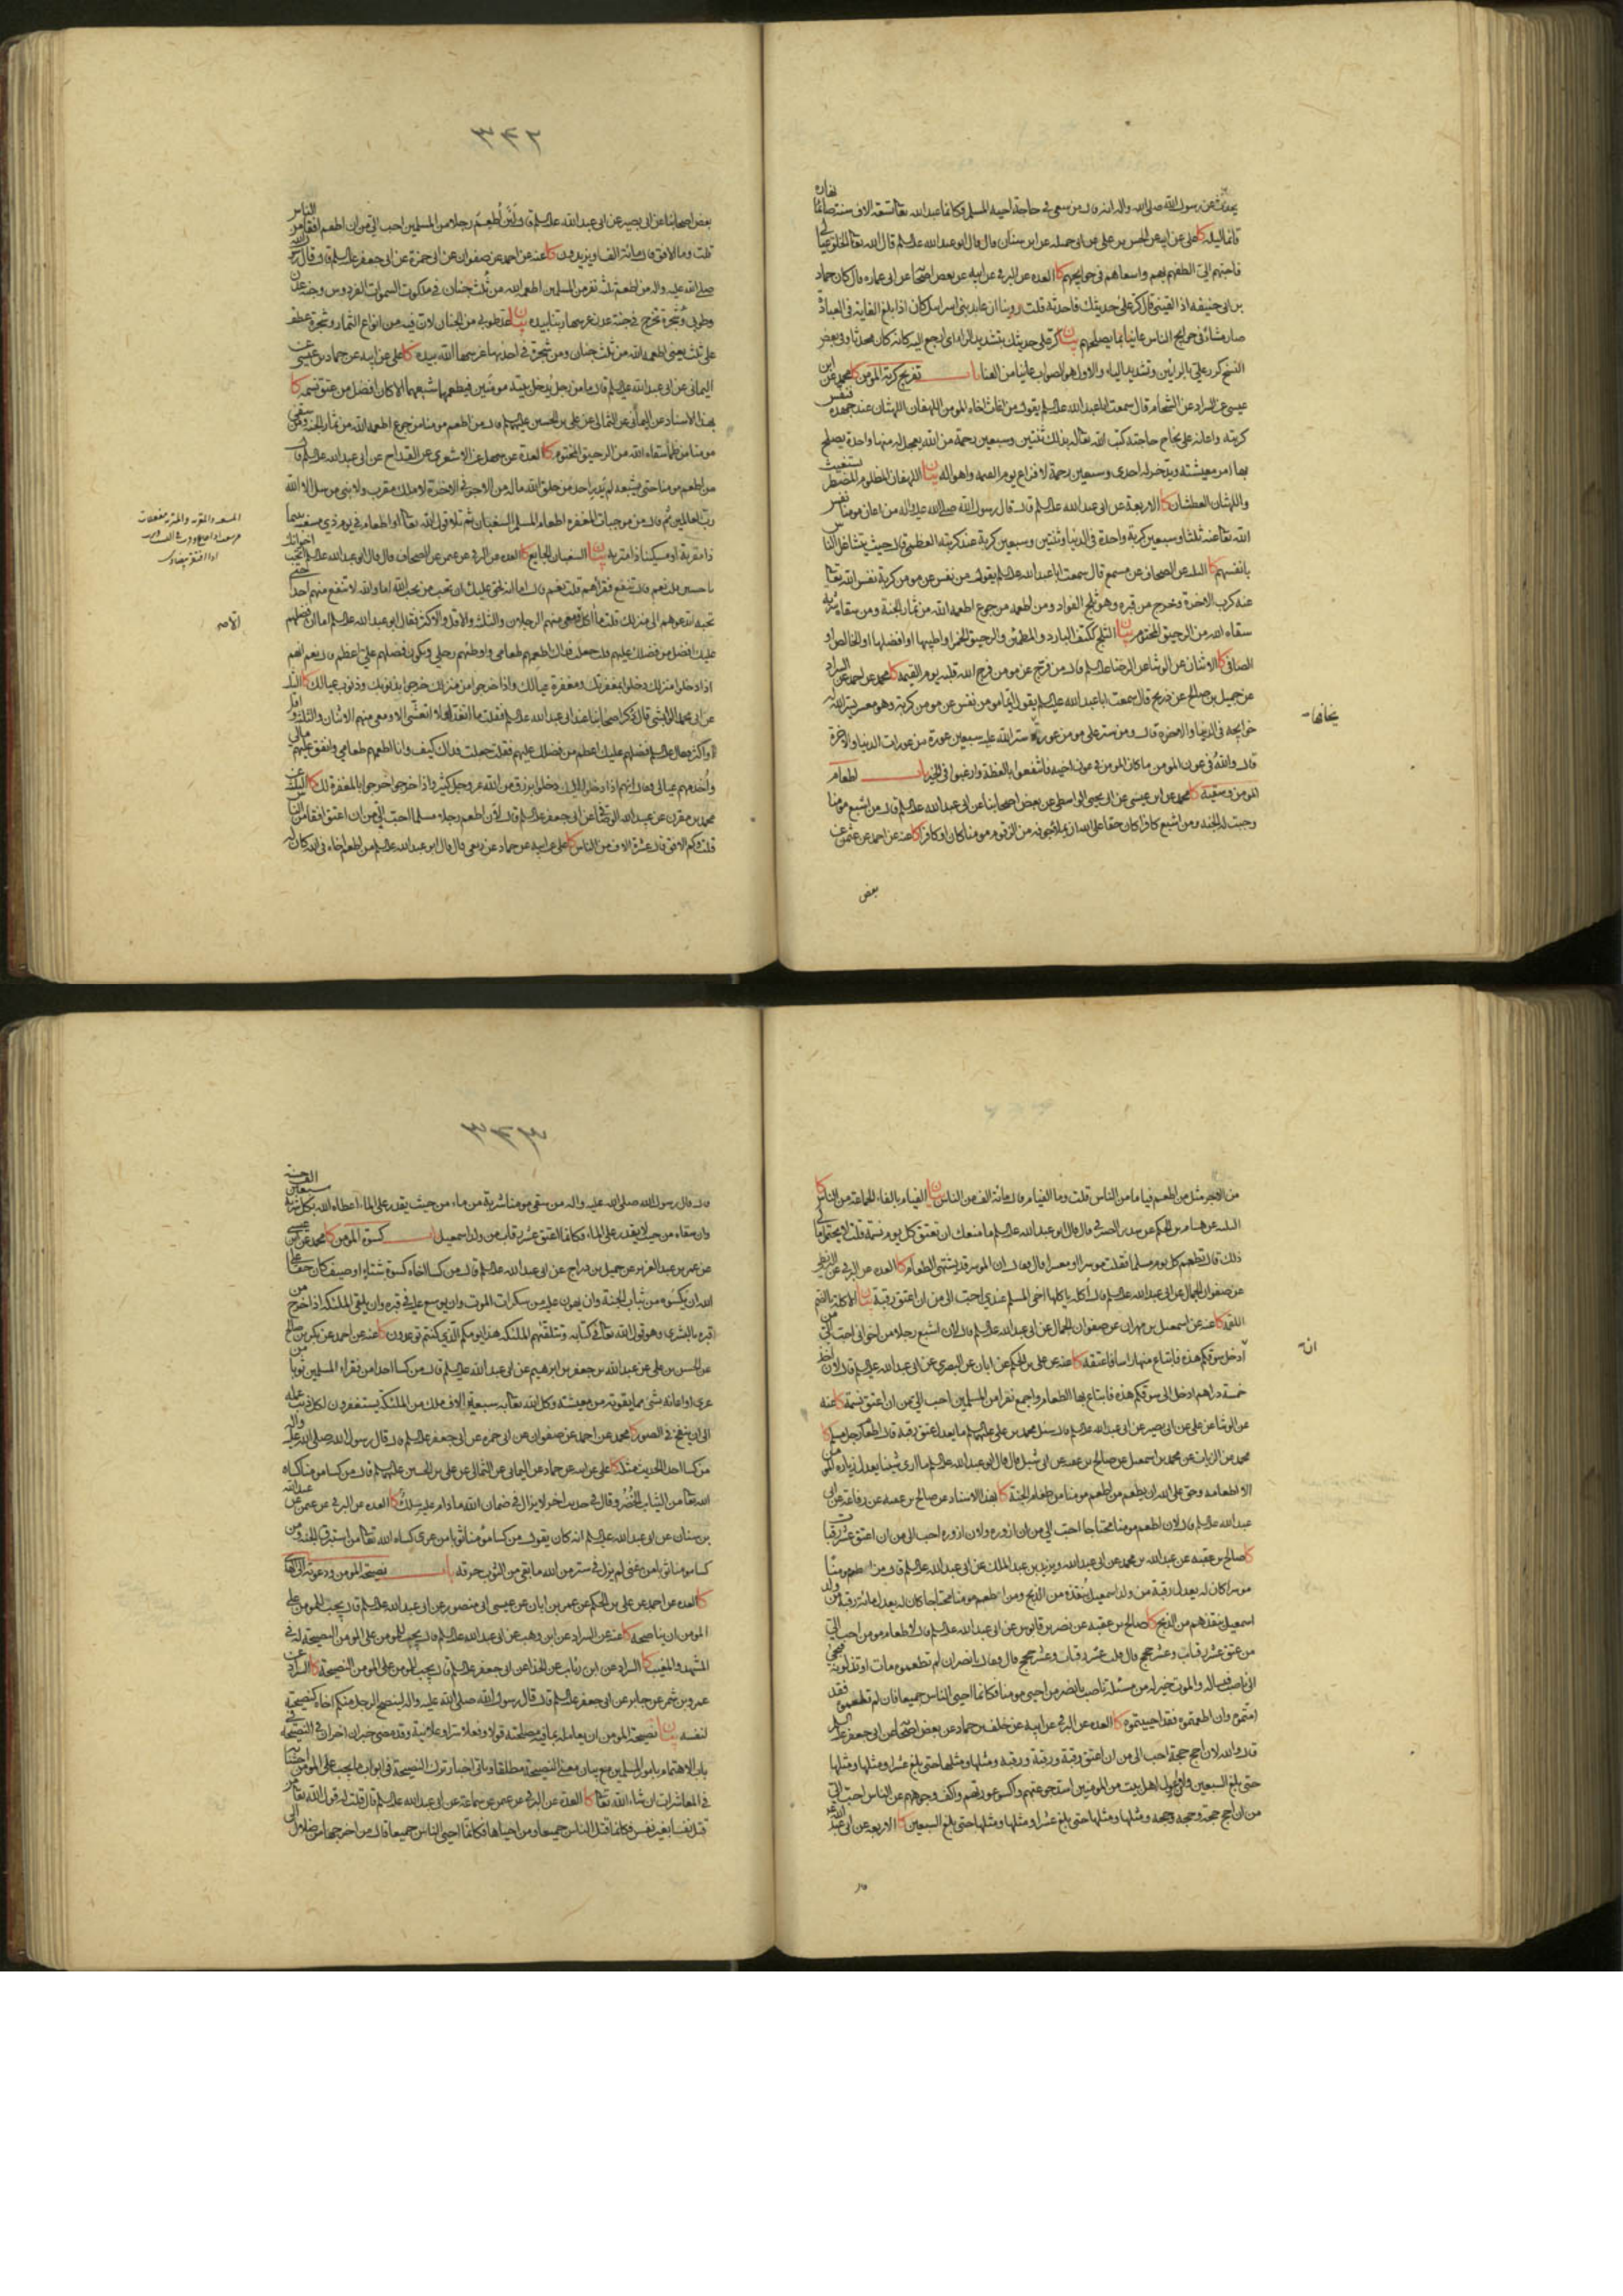 يحدث عن رسول الله صلى الله عليه واله انه قال من سعى في حاجة اخيه المسلم فكانما عبد الله تعالى تسعة الاف سنة صائما نهاره
قائما ليله كا علي عن ابيه عن الحسن بن علي عن ابي جميلة عن ابن سنان قال قال ابو عبد الله عليه السلم قال الله تعالى الخلق عيالي
فاحبهم الي الطفهم بهم واسعاهم في حوائجهم كا العدة عن البرقي عن ابيه عن بعض اصحابنا عن ابي عمارة قال كان حماد
بن ابي حنيفة اذا لقيني قال كرر علي حديثك فاحدثه قلت روينا ان عابد بني اسرائيل كان اذا بلغ الغاية في العبادة
صار مشاء في حوائج الناس عانيا بما يصلحهم بيان كر علي حديثك بتشديد الراء اي ارجع اليه كانه كان محدثا وفي بعض
النسخ كرر علي بالرائين وتشديد الياء والاول هو الصواب عانيا من العناء باب تفريج كربة المؤمن كا محمد عن ابن
عيسى عن السراد عن الشحام قال سمعت ابا عبد الله عليه السلم يقول من اغاث اخاه المومن اللهفان اللهثان عند جهده فنفس
كربته واعانه على نجاح حاجته كتب الله تعالى له بذلك ثنتين وسبعين رحمة من الله يعجل له منها واحدة يصلح
بها امر معيشته ويدخر له احدى وسبعين رحمة لافزاع يوم القيمة واهواله بيان اللهفان المظلوم المضطر يستغيث
واللهثان العطشان كا الاربعة عن ابي عبد الله عليه السلم قال قال رسول الله صلى الله عليه واله من اعان مومنا نفس
الله تعالى عنه ثلثا وسبعين كربة واحدة في الدنيا وثنتين وسبعين كربة عند كربته العظمى قال حيث يتشاغل الناس
بانفسهم كا الثلثة عن الصحاف عن مسمع قال سمعت ابا عبد الله عليه السلم يقول من نفس عن مومن كربة نفس الله تعالى
عنه كرب الاخرة وخرج من قبره وهو ثلج الفواد ومن اطعمه من جوع اطعمه الله من ثمار الجنة ومن سقاه شربة
سقاه الله من الرحيق المختوم بيان الثلج ككتف البارد والمطمئن والرحيق الخمر او اطيبها او افضلها او الخالص او
الصافي كا الاثنان عن الوشا عن الرضا عليه السلم قال من فرج عن مومن فرج الله قلبه يوم القيمة كا محمد عن احمد عن السراد
عن جميل بن صالح عن ذريح قال سمعت ابا عبد الله عليه السلم يقول ايما مومن نفس عن مومن كربة وهو معسر يسر الله له
حوائجه في الدنيا والاخرة قال ومن ستر على مومن عورة ستر الله عليه سبعين عورة من عورات الدنيا والاخرة
يخافها
قال والله في عون المومن ما كان المومن في عون اخيه فانتفعوا بالعظة وارغبوا في الخير باب اطعام
المومن وسقيه كا محمد عن ابن عيسى عن ابي يحيى الواسطي عن بعض اصحابنا عن ابي عبد الله عليه السلم قال من اشبع مومنا
وجبت له الجنة ومن اشبع كافرا كان حقا على الله ان يملا جوفه من الزقوم مومنا كان او كافرا كا عنه عن احمد عن عثمن عن
بعض
٣٤٢
بعض اصحابنا عن ابي بصير عن ابي عبد الله عليه السلم قال لان اطعم رجلا من المسلمين احب الي من ان اطعم افقا من الناس
قلت وما الافق قال مائة الف او يزيدون كا عنه عن احمد عن صفوان عن ابي حمزة عن ابي جعفر عليه السلم قال قال رسول الله
صلى الله عليه واله من اطعم ثلثة نفر من المسلمين اطعمه الله من ثلث جنان في ملكوت السموات الفردوس وجنة عدن
وطوبى وشجرة تخرج في جنة عدن غرسها ربنا بيده بيان عد طوبى من الجنان لان فيه من انواع الثمار وشجرة عطف
على ثلث يعني اطعمه الله من ثلث جنان ومن شجرة في احديها غرسها الله بيده كا علي عن ابيه عن حماد بن عيسى عن
اليماني عن ابي عبد الله عليه السلم قال ما من رجل يدخل بيته مومنين فيطعمهما شبعهما الا كان افضل من عتق نسمة كا
بهذا الاسناد عن اليماني عن الثمالي عن علي بن الحسين عليهما السلم قال من اطعم مومنا من جوع اطعمه الله من ثمار الجنة ومن سقى
مومنا من ظمأ سقاه الله من الرحيق المختوم كا العدة عن سهل عن الاشعري عن القداح عن ابي عبد الله عليه السلم قال
من اطعم مومنا حتى يشبعه لم يدر احد من خلق الله ما له من الاجر في الاخرة لا ملك مقرب ولا نبي مرسل الا الله
رب العالمين ثم قال من موجبات المغفرة اطعام المسلم السغبان ثم تلا قول الله تعالى او اطعام في يوم ذي مسغبة يتيما
ذا مقربة او مسكينا ذا متربة بيان السغبان الجايع كا العدة عن البرقي عن عثمن عن الصحاف قال قال ابو عبد الله عليه السلم اتحب اخوانك
يا حسين قلت نعم قال تنفع فقراءهم قلت نعم قال اما انه يحق عليك ان تحب من يحب الله اما والله لا تنفع منهم احدا حتى
تحبه اتدعوهم الى منزلك قلت ما اكل الا ومعي منهم الرجلان والثلثة والاقل والاكثر فقال ابو عبد الله عليه السلم اما ان فضلهم
عليك افضل من فضلك عليهم قلت جعلت فداك اطعمهم طعامي واوطئهم رحلي ويكون فضلهم علي اعظم قال نعم انهم
اذا دخلوا منزلك دخلوا بمغفرتك ومغفرة عيالك واذا خرجوا من منزلك خرجوا بذنوبك وذنوب عيالك كا الثلثة
عن ابي محمد الوابشي قال ذكر اصحابنا عند ابي عبد الله عليه السلم فقلت ما اتغدى ولا اتعشى الا ومعي منهم الاثنان والثلثة واقل
او اكثر فقال عليه السلم فضلهم عليك اعظم من فضلك عليهم فقلت جعلت فداك كيف وانا اطعمهم طعامي وانفق عليهم مالي
واخدمهم عيالي فقال انهم اذا دخلوا عليك دخلوا برزق من الله عز وجل كثير واذا خرجوا خرجوا بالمغفرة لك كا الثلثة عن
محمد بن مقرن عن عبيد الله الوصافي عن ابي جعفر عليه السلم قال لان اطعم رجلا مسلما احب الي من ان اعتق افقا من الناس
قلت وكم الافق قال عشرة الاف من الناس كا علي عن ابيه عن حماد عن ربعي قال قال ابو عبد الله عليه السلم من اطعم اخاه في الله كان له
من الاجر مثل من اطعم فياما من الناس قلت وما الفيام قال مائة الف من الناس بيان الفيام بالفاء الجماعة من الناس كا
الثلثة عن هشام بن الحكم عن سدير الصيرفي قال قال لي ابو عبد الله عليه السلم ما منعك ان تعتق كل يوم نسمة قلت لا يحتمل مالي
ذلك قال تطعم كل يوم مسلما فقلت موسرا او معسرا قال فقال ان الموسر قد يشتهي الطعام كا العدة عن البرقي عن البزنطي
عن صفوان الجمال عن ابي عبد الله عليه السلم قال اكلة ياكلها اخي المسلم عندي احب الي من ان اعتق رقبة بيان الاكلة بالضم
اللقمة كا عنه عن اسمعيل بن مهران عن صفوان الجمال عن ابي عبد الله عليه السلم قال لان اشبع رجلا من اخواني احب الي من
ان
ادخل سوقكم هذه فابتاع منها راسا فاعتقه كا عنه عن علي بن الحكم عن ابان عن البصري عن ابي عبد الله عليه السلم قال لان اخذ
خمسة دراهم ادخل الى سوقكم هذه فابتاع بها الطعام واجمع نفرا من المسلمين احب الي من ان اعتق نسمة كا عنه
عن الوشا عن علي عن ابي بصير عن ابي عبد الله عليه السلم قال سئل محمد بن علي عليهما السلم ما يعدل عتق رقبة قال اطعام رجل مسلم كا
محمد عن الزيات عن محمد بن اسمعيل عن صالح بن عقبة عن ابي شبل قال قال ابو عبد الله عليه السلم ما ارى شيئا يعدل زيارة المومن
الا اطعامه وحق على الله ان يطعم من اطعم مومنا من طعام الجنة كا بهذا الاسناد عن صالح بن عقبة عن رفاعة عن ابي
عبد الله عليه السلم قال لان اطعم مومنا محتاجا احب الي من ان ازوره ولان ازوره احب الي من ان اعتق عشر رقاب
كا صالح بن عقبة عن عبد الله بن محمد عن ابي عبد الله ويزيد بن عبد الملك عن ابي عبد الله عليه السلم قال من اطعم مومنا
موسرا كان له يعدل رقبة من ولد اسمعيل ينقذه من الذبح ومن اطعم مومنا محتاجا كان له يعدل مائة رقبة من ولد
اسمعيل ينقذهم من الذبح كا صالح بن عقبة عن نصر بن قابوس عن ابي عبد الله عليه السلم قال لاطعام مومن احب الي
من عتق عشر رقاب وعشر حجج قال قلت عشر رقاب وعشر حجج قال فقال يا نصر ان لم تطعموه مات او تذلونه فيجئ
الى ناصب فيساله والموت خير له من مسئلة ناصب يا نصر من احيى مومنا فكانما احيى الناس جميعا فان لم تطعموه فقد
امتموه وان اطعمتموه فقد احييتموه كا العدة عن البرقي عن ابيه عن خلف بن حماد عن بعض اصحابنا عن ابي جعفر عليه السلم
قال والله لان احج حجة احب الي من ان اعتق رقبة ورقبة ورقبة ومثلها ومثلها حتى بلغ عشرا ومثلها ومثلها
حتى بلغ السبعين ولان اعول اهل بيت من المومنين اشبع جوعتهم واكسو عورتهم واكف وجوههم عن الناس احب الي
من ان احج حجة وحجة وحجة ومثلها ومثلها حتى بلغ عشرا ومثلها ومثلها حتى بلغ السبعين كا الاربعة عن ابي عبد الله
قال
٣٤٣
قال قال رسول الله صلى الله عليه واله من سقى مومنا شربة من ماء من حيث يقدر على الماء اعطاه الله بكل شربة سبعين الف حسنة
وان سقاه من حيث لا يقدر على الماء فكانما اعتق عشر رقاب من ولد اسمعيل باب كسوة المؤمن كا محمد عن ابن عيسى
عن عمر بن عبد العزيز عن جميل بن دراج عن ابي عبد الله عليه السلم قال من كسا اخاه كسوة شتاء او صيف كان حقا على
الله ان يكسوه من ثياب الجنة وان يهون عليه من سكرات الموت وان يوسع عليه في قبره وان يلقى الملئكة اذا خرج من
قبره بالبشرى وهو قول الله تعالى في كتابه وتتلقيهم الملئكة هذا يومكم الذي كنتم توعدون كا عنه عن احمد عن بكر بن صالح
عن الحسن بن علي عن عبد الله بن جعفر بن ابرهيم عن ابي عبد الله عليه السلم قال من كسا احدا من فقراء المسلمين ثوبا من
عرى او اعانه بشئ مما يقوته من معيشته وكل الله تعالى به سبعة الاف ملك من الملئكة يستغفرون لكل ذنب عمله
الى ان ينفخ في الصور كا محمد عن احمد عن صفوان عن ابي حمزة عن ابي جعفر عليه السلم قال قال رسول الله صلى الله عليه واله
من كسا احدا الحديث مثله كا علي عن ابيه عن حماد عن اليماني عن الثمالي عن علي بن الحسين عليهما السلم قال من كسا مومنا كساه
الله تعالى من الثياب الخضر وقال في حديث اخر لا يزال في ضمان الله ما دام عليه سلك كا العدة عن البرقي عن عثمن عن عبد الله
بن سنان عن ابي عبد الله عليه السلم انه كان يقول من كسا مومنا ثوبا من عرى كساه الله تعالى من استبرق الجنة ومن
كسا مومنا ثوبا من غنى لم يزل في ستر من الله ما بقي من الثوب خرقة باب نصيحة المومن ودعوته الى الهدى
كا العدة عن احمد عن علي بن الحكم عن عمر بن ابان عن عيسى بن ابي منصور عن ابي عبد الله عليه السلم قال يجب للمومن على
المومن ان يناصحه كا عنه عن السراد عن ابن وهب عن ابي عبد الله عليه السلم قال يجب للمومن على المومن النصيحة له في
المشهد والمغيب كا السراد عن ابن رئاب عن الحذاء عن ابي جعفر عليه السلم قال يجب للمومن على المومن النصيحة كا السراد عن
عمرو بن شمر عن جابر عن ابي جعفر عليه السلم قال قال رسول الله صلى الله عليه واله لينصح الرجل منكم اخاه كنصيحته
لنفسه بيان نصيحة المومن ان يعامله بما فيه مصلحته قولا وفعلا سرا وعلانية وقد مضى خبران اخران في النصيحة في
باب الاهتمام بامور المسلمين مع بيان معنى النصيحة مطلقا وياتي اخبار ترك النصيحة في ابواب ما يجب على المومن اجتنابه
في المعاشرات ان شاء الله تعالى كا العدة عن البرقي عن عثمن عن سماعة عن ابي عبد الله عليه السلم قال قلت له قول الله تعالى من
قتل نفسا بغير نفس فكانما قتل الناس جميعا ومن احياها فكانما احيى الناس جميعا قال من اخرجها من ضلال الى